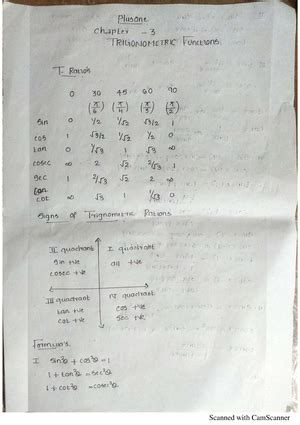 Plusone
Chapter - 3
TRIGONOMETRIC Functions.
T- Ratios
0 30 45 60 90
(π/6) (π/4) (π/3) (π/2)
sin 0 1/2 1/√2 √3/2 1
cos 1 √3/2 1/√2 1/2 0
tan 0 1/√3 1 √3 ∞
cosec ∞ 2 √2 2/√3 1
sec 1 2/√3 √2 2 ∞
cot ∞ √3 1 1/√3 0
Signs of Trignometric Rations
II quadrant
sin +ve
cosec +ve
I quadrant
all +ve
III quadrant
tan +ve
cot +ve
IV quadrant
cos +ve
sec +ve
Formula's
I sin²θ + cos²θ = 1
1 + tan²θ = sec²θ
1 + cot²θ = cosec²θ
Scanned with CamScanner